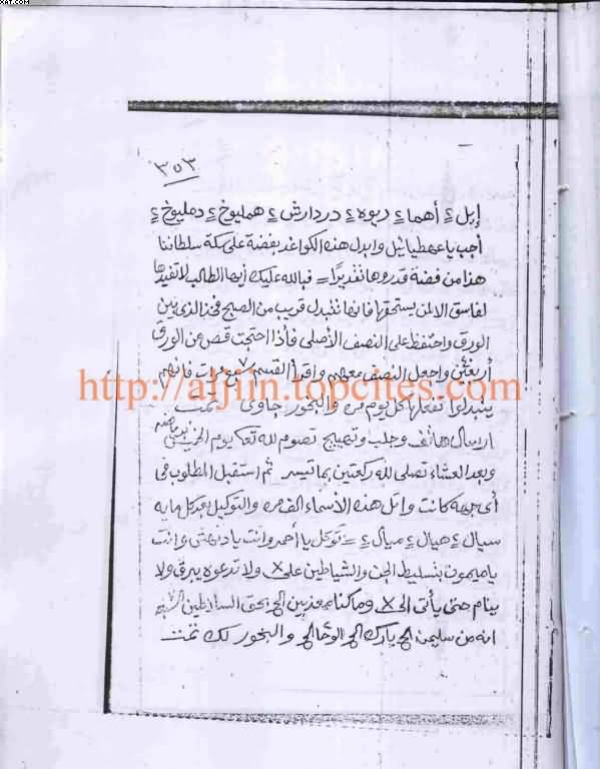 XAT.COM
٣٥٣
إيل ٤ أهما ٤ ربوه ٤ دردارش ٤ همليوخ ٤ دمليوخ ٤
أجب يا عهطيائيل وابدل هذه الكواغد بفضة على سكة سلطاننا
هذا من فضة قدروها تقديرًا فبالله عليك أيها الطالب لا تفيدها
لفاسق الالمن يستحقها فانها تتبدل قريب من الصبح فخذ الذى بين
الورق واحتفظ على النصف الأصلى فأذا احتجت قص من الورق
واجعل النصف معهم واقرأ القسم ٧ مرات فانهم
http://aljiin.topcites.com
يتبدلوا تفعلها كل يوم مره والبخور جاوى تمت
ارسال هاتف وجلب وتهييج تصوم لله تعا يوم الخميس
وبعد العشاء تصلى لله ركعتين بما تيسر ثم استقبل المطلوب فى
أى جهة كانت واتل هذه الأسماء الف مره والتوكيل بعد كل مايه
سيال ٤ هيال ٤ ميال ٤ توكل يا أحمر وانت يا دنهش وانت
يا ميمون بتسليط الجن والشياطين على ولا تدعوه يبرق ولا
ينام حتى يأتى الى وما كنا معذبين الخ بحق السلاطين
انه من سليمن الخ بارك الخ الوحا الخ والبخور لك تمت